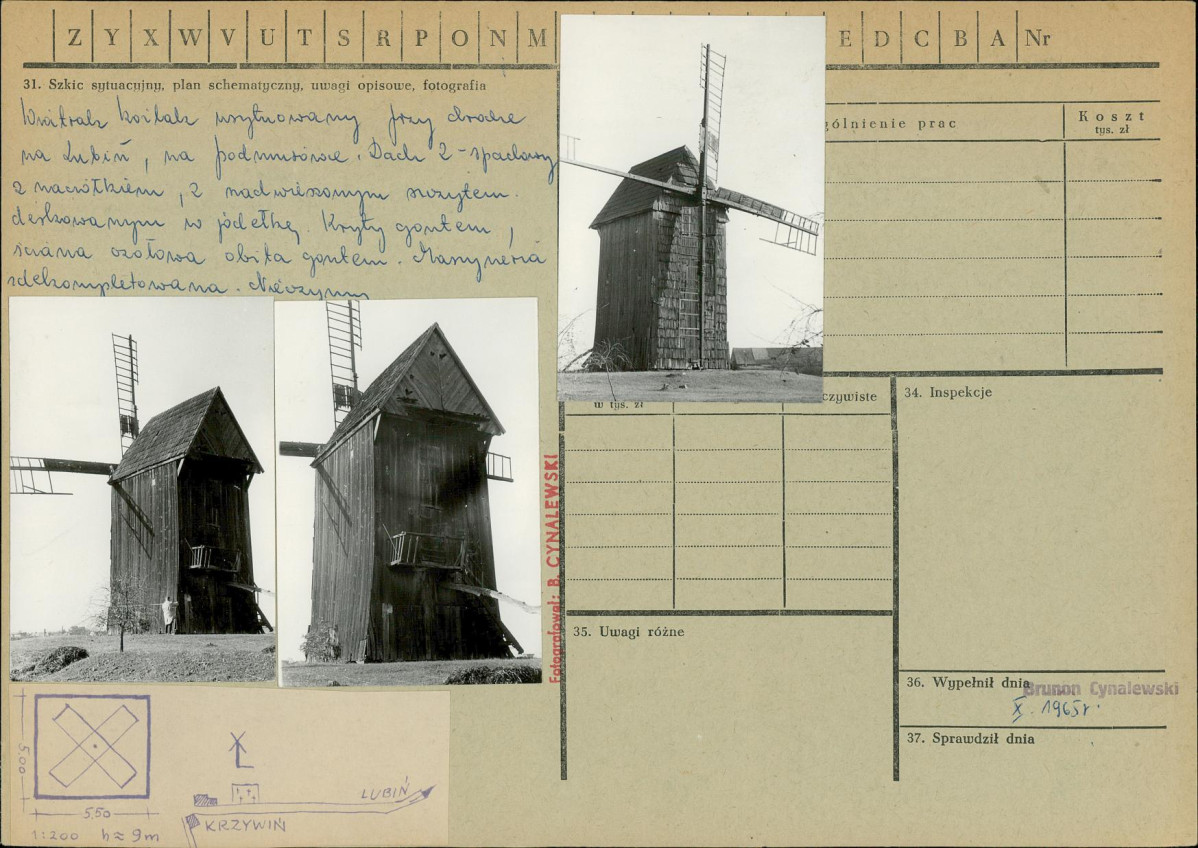 Z Y X W V U T S R P O N M E D C B A Nr
31. Szkic sytuacyjny, plan schematyczny, uwagi opisowe, fotografia
Wiatrak koźlak usytuowany przy drodze
na Lubiń, na podmurówce. Dach 2-spadowy
z naciółkiem, z nadwieszonym szczytem
deskowanym w jodełkę. Kryty gontem,
ściana czołowa obita gontem. Maszyneria
zdekompletowana. Nieczynny
gólnienie prac
Koszt
tys. zł
w tys. zł
czywiste
34. Inspekcje
Fotografował: B. CYNALEWSKI
35. Uwagi różne
36. Wypełnił dnia
Brunon Cynalewski
X. 1965 r.
37. Sprawdził dnia
5,00
5,50
1:200 h≈9m
LUBIŃ
KRZYWIŃ